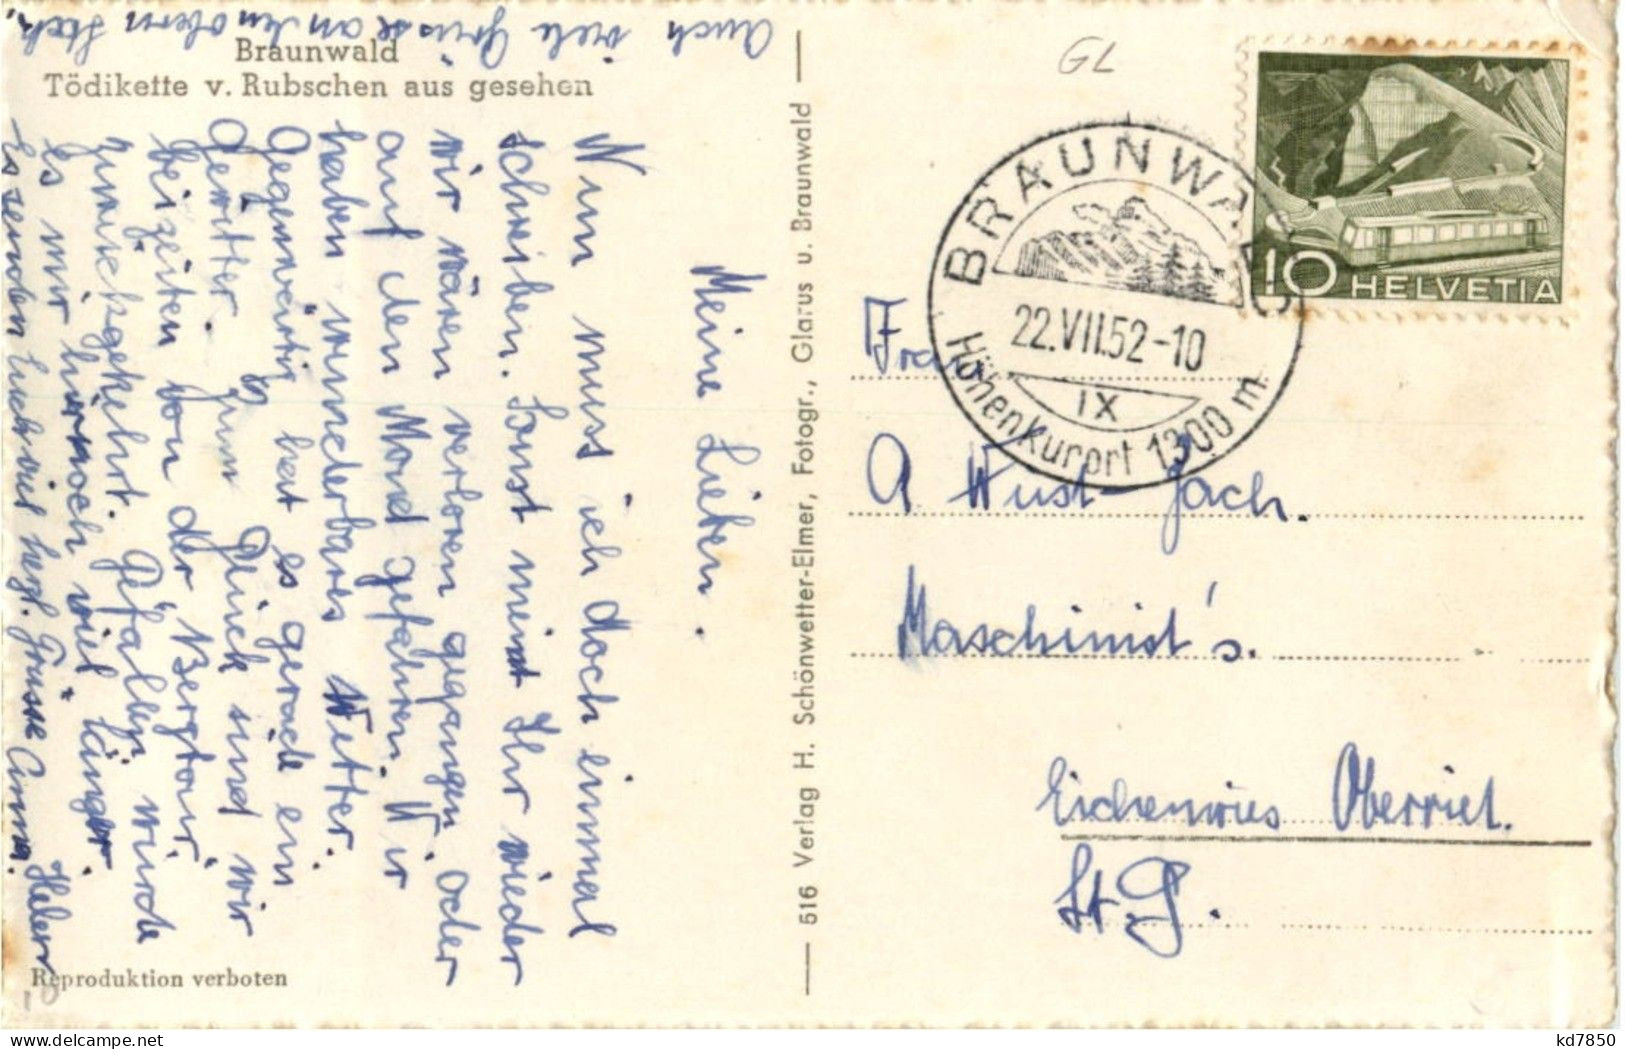 Braunwald
Tödikette v. Rubschen aus gesehen
Meine Lieben.
Nun muss ich doch einmal
schreiben. Sonst meint Ihr wieder
wir wären verloren gegangen oder
auf den Mond gefahren. Wir
haben wunderbares Wetter.
Gegenwärtig hat es gerade ein
Gewitter. Zum Glück sind wir
beizeiten von der Bergtour
zurückgekehrt. Gefallen würde
es mir hier noch viel länger.
Es senden Euch viel herzl. Grüsse Anna. Helen
Auch viele Grüsse an den obern Stock.
Reproduktion verboten
516 Verlag H. Schönwetter-Elmer, Fotogr., Glarus u. Braunwald
GL
BRAUNWALD
22.VII.52-10
IX
Höhenkurort 1300 m
10 HELVETIA
Frau
A Wüst-Zäch.
Maschinist's.
Eichenwies Oberriet.
St. G.
kd7850